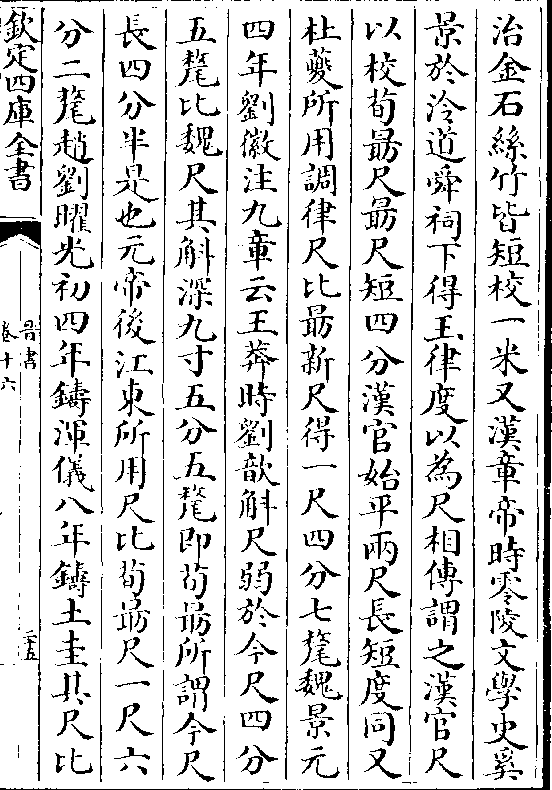 冶金石絲竹皆短校一米又漢章帝時零陵文學史奚
景於泠道舜祠下得玉律度以為尺相傳謂之漢官尺
以校荀勗尺勗尺短四分漢官始平兩尺長短度同又
杜夔所用調律尺比勗新尺得一尺四分七氂魏景元
四年劉徽注九章云王莽時劉歆斛尺弱於今尺四分
五氂比魏尺其斛深九寸五分五氂即荀勗所謂今尺
長四分半是也元帝後江東所用尺比荀勗尺一尺六
分二氂趙劉曜光初四年鑄渾儀八年鑄土圭其尺比
欽定四庫全書
晉書
卷十六
二十五